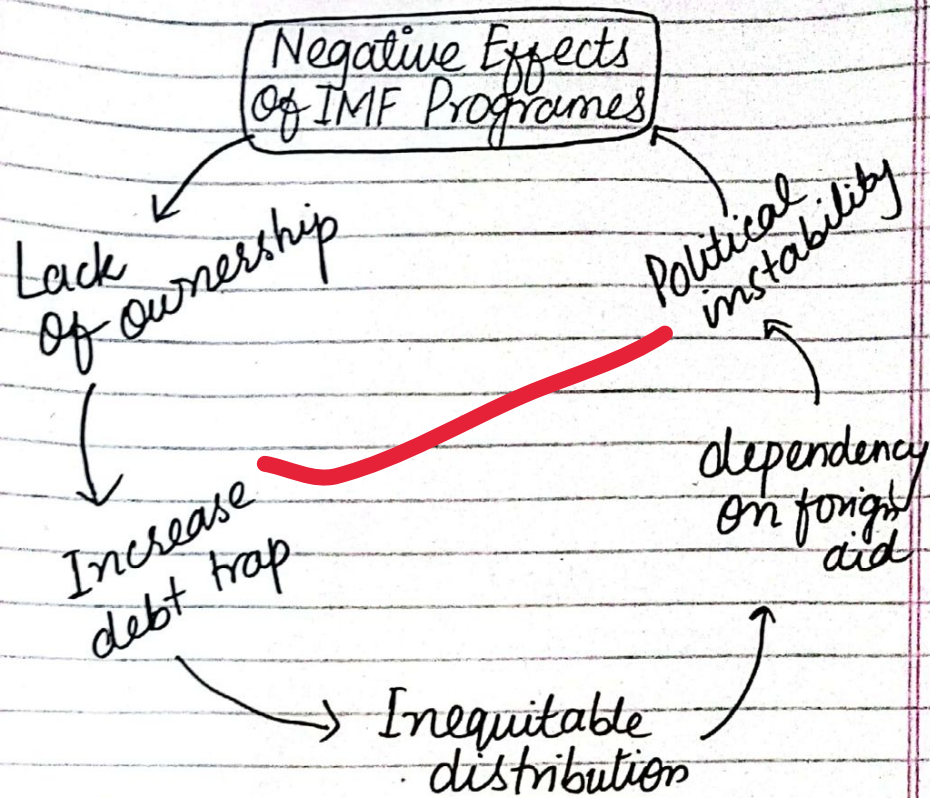 Negative Effects
Of IMF Programes
Lack
of ownership
Increase
debt trap
Inequitable
distribution
dependency
on forign
aid
Political
instability